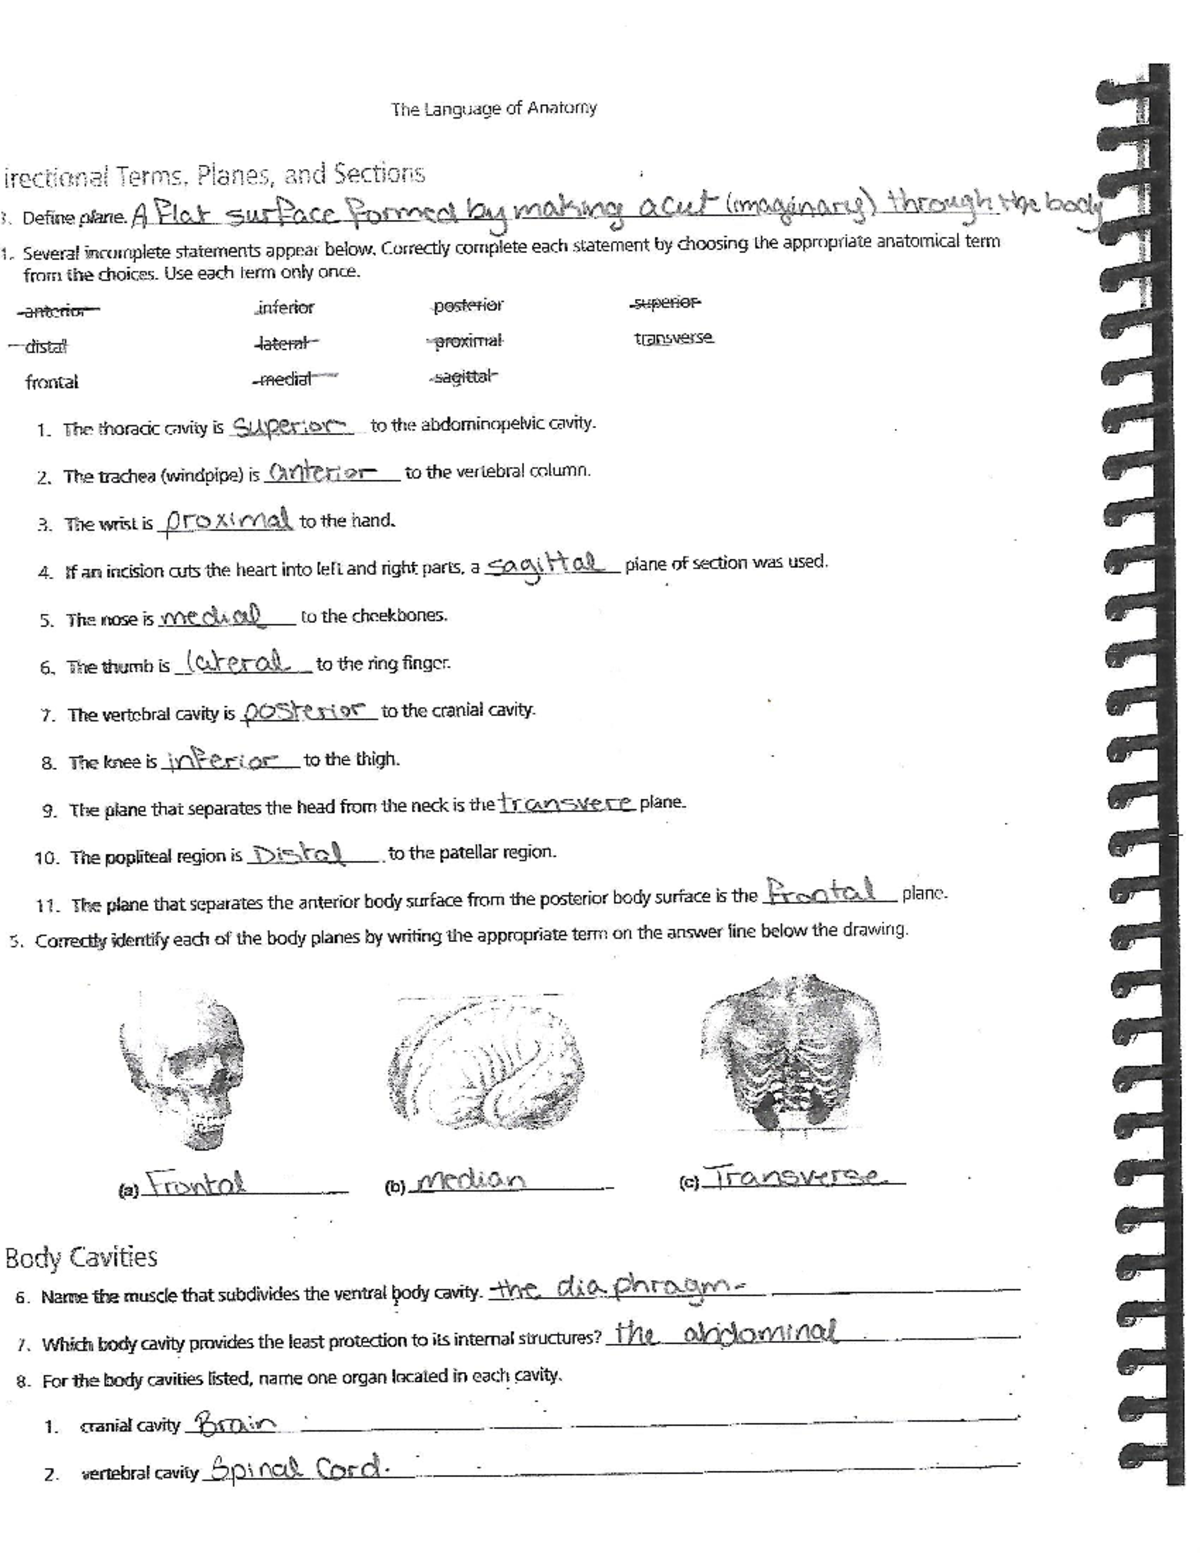 The Language of Anatomy
irectional Terms, Planes, and Sections
3. Define plane. A Flat surface formed by making a cut (imaginary) through the body
1. Several incomplete statements appear below. Correctly complete each statement by choosing the appropriate anatomical term
from the choices. Use each term only once.
anterior inferior posterior superior
distal lateral proximal transverse
frontal medial sagittal
1. The thoracic cavity is Superior to the abdominopelvic cavity.
2. The trachea (windpipe) is anterior to the vertebral column.
3. The wrist is proximal to the hand.
4. If an incision cuts the heart into left and right parts, a sagittal plane of section was used.
5. The nose is medial to the cheekbones.
6. The thumb is lateral to the ring finger.
7. The vertebral cavity is posterior to the cranial cavity.
8. The knee is inferior to the thigh.
9. The plane that separates the head from the neck is the transvere plane.
10. The popliteal region is Distal to the patellar region.
11. The plane that separates the anterior body surface from the posterior body surface is the frontal plane.
5. Correctly identify each of the body planes by writing the appropriate term on the answer line below the drawing.
(a) Frontal (b) median (c) Transverse
Body Cavities
6. Name the muscle that subdivides the ventral body cavity. the diaphragm
7. Which body cavity provides the least protection to its internal structures? the abdominal
8. For the body cavities listed, name one organ located in each cavity.
1. cranial cavity Brain
2. vertebral cavity Spinal Cord.